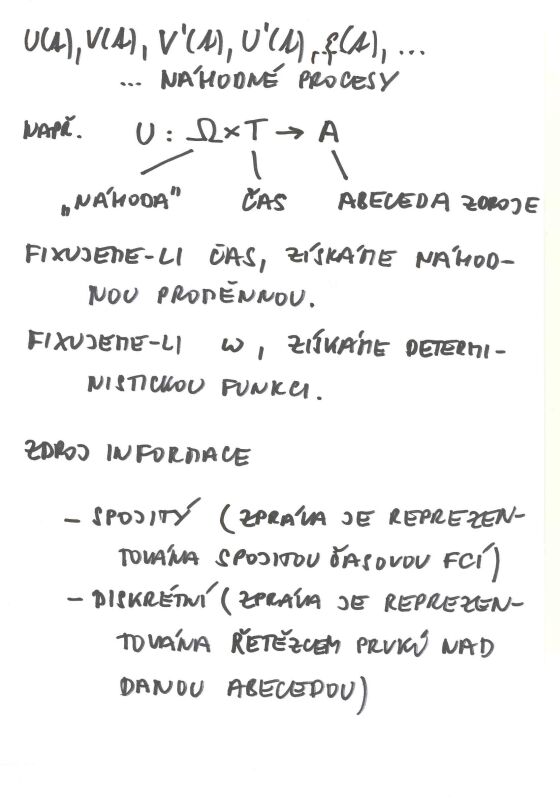 U(t), V(t), V'(t), U'(t), ξ(t), ...
... NÁHODNÉ PROCESY
NAPŘ. U : Ω × T → A
„NÁHODA" ČAS ABECEDA ZDROJE
FIXUJEME-LI ČAS, ZÍSKÁME NÁHOD-
NOU PROMĚNNOU.
FIXUJEME-LI ω, ZÍSKÁME DETERMI-
NISTICKOU FUNKCI.
ZDROJ INFORMACE
- SPOJITÝ (ZPRÁVA JE REPREZEN-
TOVÁNA SPOJITOU ČASOVOU FCÍ)
- DISKRÉTNÍ (ZPRÁVA JE REPREZEN-
TOVÁNA ŘETĚZCEM PRVKŮ NAD
DANOU ABECEDOU)